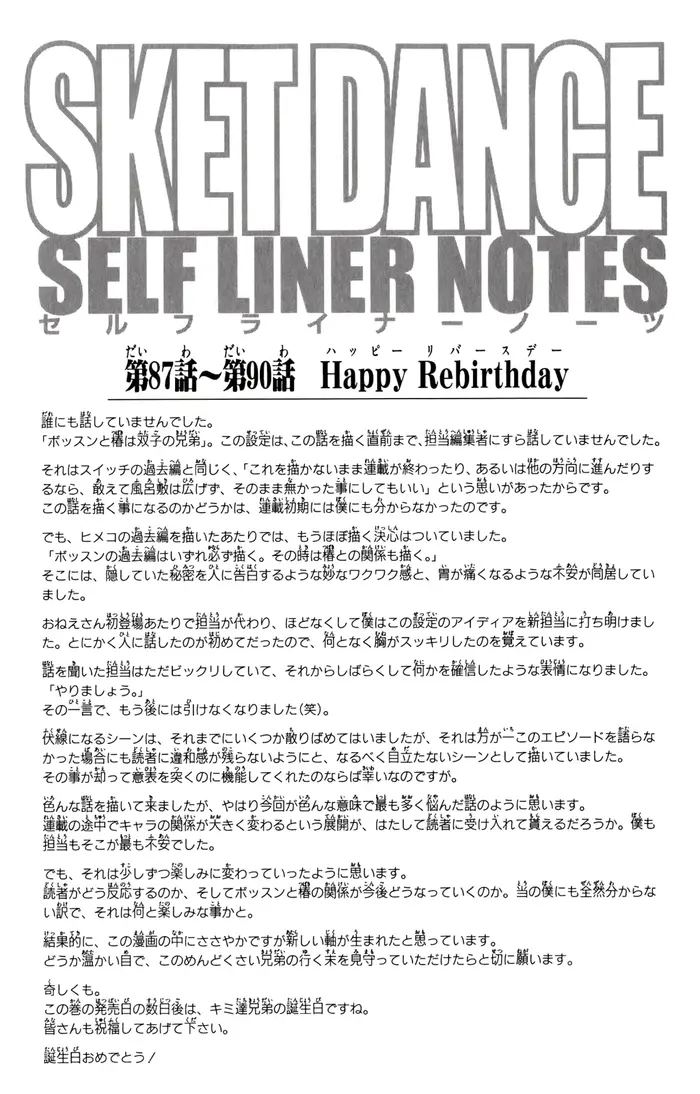 SKET DANCE
SELF LINER NOTES
セルフライナーノーツ
第87話～第90話 Happy Rebirthday
誰にも話していませんでした。
「ボッスンと椿は双子の兄弟」。この設定は、この話を描く直前まで、担当編集者にすら話していませんでした。
それはスイッチの過去編と同じく、「これを描かないまま連載が終わったり、あるいは他の方向に進んだりす
るなら、敢えて風呂敷は広げず、そのまま無かった事にしてもいい」という思いがあったからです。
この話を描く事になるのかどうかは、連載初期には僕にも分からなかったのです。
でも、ヒメコの過去編を描いたあたりでは、もうほぼ描く決心はついていました。
「ボッスンの過去編はいずれ必ず描く。その時は椿との関係も描く。」
そこには、隠していた秘密を人に告白するような妙なワクワク感と、胃が痛くなるような不安が同居してい
ました。
おねえさん初登場あたりで担当が代わり、ほどなくして僕はこの設定のアイディアを新担当に打ち明けまし
た。とにかく人に話したのが初めてだったので、何となく胸がスッキリしたのを覚えています。
話を聞いた担当はただビックリしていて、それからしばらくして何かを確信したような表情になりました。
「やりましょう。」
その一言で、もう後には引けなくなりました（笑）。
伏線になるシーンは、それまでにいくつか散りばめてはいましたが、それは万が一このエピソードを語らな
かった場合にも読者に違和感が残らないようにと、なるべく目立たないシーンとして描いていました。
その事が却って意表を突くのに機能してくれたのならば幸いなのですが。
色んな話を描いて来ましたが、やはり今回が色んな意味で最も多く悩んだ話のように思います。
連載の途中でキャラの関係が大きく変わるという展開が、はたして読者に受け入れて貰えるだろうか。僕も
担当もそこが最も不安でした。
でも、それは少しずつ楽しみに変わっていったように思います。
読者がどう反応するのか、そしてボッスンと椿の関係が今後どうなっていくのか。当の僕にも全然分からな
い訳で、それは何と楽しみな事かと。
結果的に、この漫画の中にささやかですが新しい軸が生まれたと思っています。
どうか温かい目で、このめんどくさい兄弟の行く末を見守っていただけたらと切に願います。
奇しくも。
この巻の発売日の数日後は、キミ達兄弟の誕生日ですね。
皆さんも祝福してあげて下さい。
誕生日おめでとう！